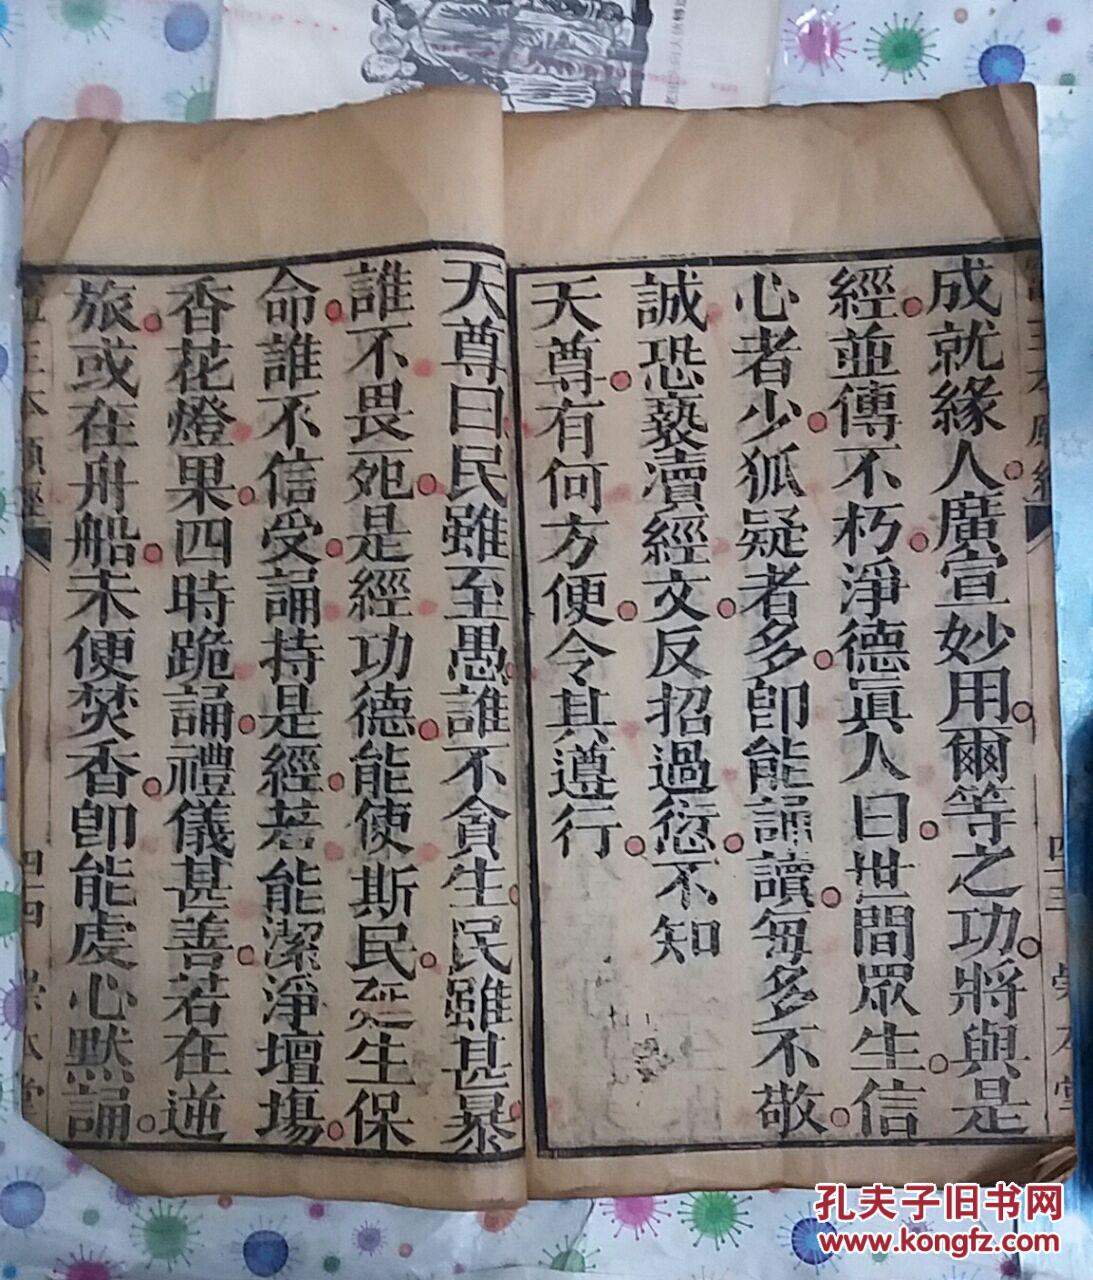 成就緣人廣宣妙用爾等之功將與是
經並傳不朽淨德眞人曰世間眾生信
心者少狐疑者多卽能誦讀每多不敬
誠恐褻瀆經文反招過愆不知
天尊有何方便令其遵行
天尊曰民雖至愚誰不貪生民雖甚暴
誰不畏死是經功德能使斯民延生保
命誰不信受誦持是經若能潔淨壇塲
香花燈果四時跪誦禮儀甚善若在逆
旅或在舟船未便焚香卽能虔心默誦
本願經
四十三
本願經
四十四
孔夫子旧书网
www.kongfz.com